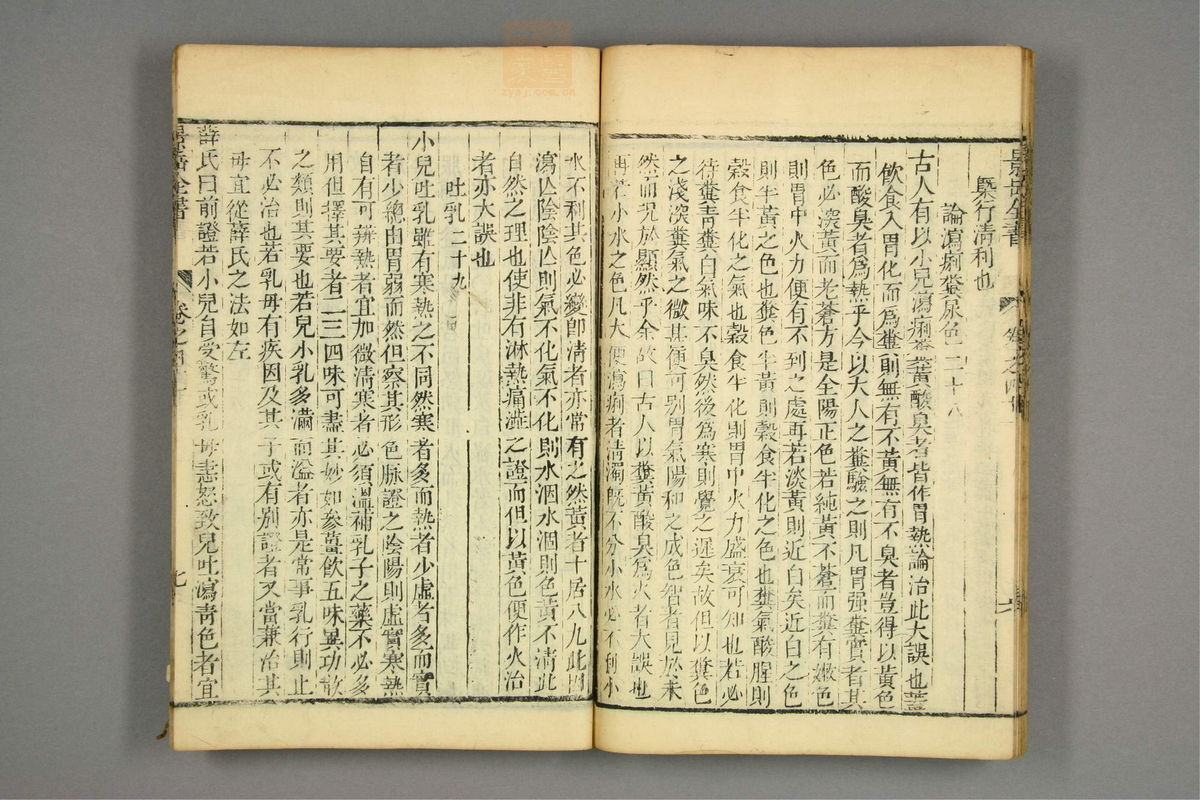 景岳全書
槩行清利也
論瀉痢糞尿色二十八
古人有以小兒瀉痢糞黃酸臭者皆作胃熱論治此大誤也蓋
飲食入胃化而爲糞則無有不黃無有不臭者豈得以黃色
而酸臭者爲熱乎今以大人之糞驗之則凡胃强糞實者其
色必深黃而老蒼方是全陽正色若純黃不蒼而糞有嫩色
則胃中火力便有不到之處再若淡黃則近白矣近白之色
則半黃之色也糞色半黃則穀食半化之色也糞氣酸腥則
穀食半化之氣也穀食半化則胃中火力盛衰可知也若必
待糞靑糞白氣味不臭然後爲寒則覺之遲矣故但以糞色
之淺深糞氣之微甚便可別胃氣陽和之成色智者見於未
然而况於顯然乎余故曰古人以糞黃酸臭爲火者大誤也
再若小水之色凡大便瀉痢者清濁旣不分小水必不利小
水不利其色必變卽清者亦常有之然黃者十居八九此因
瀉亡陰陰亡則氣不化氣不化則水涸水涸則色黃不清此
自然之理也使非有淋熱痛澁之證而但以黃色便作火治
者亦大誤也
吐乳二十九
小兒吐乳雖有寒熱之不同然寒者多而熱者少虛者多而實
者少總由胃弱而然但察其形色脈證之陰陽則虛實寒熱
自有可辨熱者宜加微清寒者必須溫補乳子之藥不必多
用但擇其要者二三四味可盡其妙如參薑飲五味異功散
之類則其要也若兒小乳多滿而溢者亦是常事乳行則止
不必治也若乳母有疾因及其子或有別證者又當兼治其
母宜從薛氏之法如左
薛氏曰前證若小兒自受驚或乳母恚怒致兒吐瀉靑色者宜
景岳全書
卷之四十
七